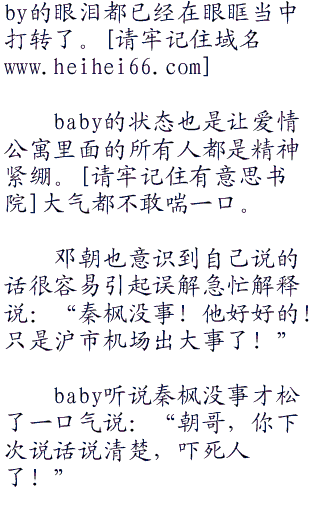 by的眼泪都已经在眼眶当中
打转了。[请牢记住域名
www.heihei66.com]
baby的状态也是让爱情
公寓里面的所有人都是精神
紧绷。[请牢记住有意思书
院]大气都不敢喘一口。
邓朝也意识到自己说的
话很容易引起误解急忙解释
说：“秦枫没事！他好好的！
只是沪市机场出大事了！”
baby听说秦枫没事才松
了一口气说：“朝哥，你下
次说话说清楚，吓死人
了！”